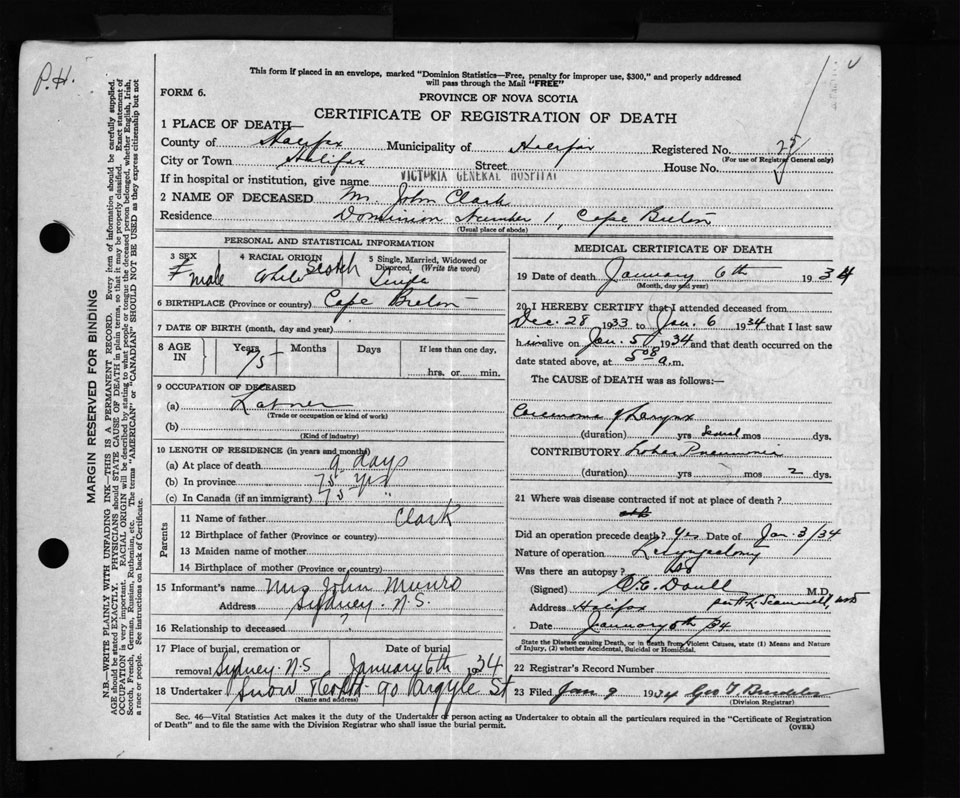 P.H.
This form if placed in an envelope, marked "Dominion Statistics—Free, penalty for improper use, $300," and properly addressed
will pass through the Mail "FREE"
FORM 6.
PROVINCE OF NOVA SCOTIA
CERTIFICATE OF REGISTRATION OF DEATH
1 PLACE OF DEATH
County of Halifax Municipality of Halifax Registered No. 25
(For use of Registrar General only)
City or Town Halifax Street House No.
If in hospital or institution, give name VICTORIA GENERAL HOSPITAL
2 NAME OF DECEASED Mr. John Clark
Residence Dominion Number 1, Cape Breton
(Usual place of abode)
PERSONAL AND STATISTICAL INFORMATION
3 SEX 4 RACIAL ORIGIN 5 Single, Married, Widowed or
Divorced, (Write the word)
male White Scotch Single
6 BIRTHPLACE (Province or country) Cape Breton
7 DATE OF BIRTH (month, day and year)
8 AGE IN Years Months Days If less than one day,
75 hrs. or min.
9 OCCUPATION OF DECEASED
(a)
(Trade or occupation or kind of work)
(b)
(Kind of industry)
10 LENGTH OF RESIDENCE (in years and months)
(a) At place of death 9 days
(b) In province 75 yrs
(c) In Canada (if an immigrant) 75 "
Parents
11 Name of father Clark
12 Birthplace of father (Province or country)
13 Maiden name of mother
14 Birthplace of mother (Province or country)
15 Informant's name Mrs John Munro
Address Sydney. N.S.
16 Relationship to deceased ?
17 Place of burial, cremation or Date of burial
removal Sydney. N.S January 6th 1934
18 Undertaker Snow 90 Argyle St
(Name and address)
MEDICAL CERTIFICATE OF DEATH
19 Date of death January 6th 1934
(Month, day and year)
20 I HEREBY CERTIFY that I attended deceased from
Dec. 28 1933 to Jan. 6 1934 that I last saw
h im alive on Jan. 5 1934 and that death occurred on the
date stated above, at 5 08 a.m.
The CAUSE of DEATH was as follows:
Carcinoma of Larynx
(duration) yrs Several mos dys.
CONTRIBUTORY Lobar Pneumonia
(duration) yrs mos 2 dys.
21 Where was disease contracted if not at place of death?
Did an operation precede death? Yes Date of Jan. 3/34
Nature of operation Laryngectomy
Was there an autopsy? No
(Signed) M.D.
Address Halifax
Date January 6th 34
State the Disease causing Death, or in death from Violent Causes, state (1) Means and Nature
of Injury, (2) whether Accidental, Suicidal or Homicidal.
22 Registrar's Record Number
23 Filed Jan 9 1934 Geo T.
(Division Registrar)
Sec. 46—Vital Statistics Act makes it the duty of the Undertaker or person acting as Undertaker to obtain all the particulars required in the "Certificate of Registration
of Death" and to file the same with the Division Registrar who shall issue the burial permit.
(OVER)
MARGIN RESERVED FOR BINDING
N.B.—WRITE PLAINLY WITH UNFADING INK—THIS IS A PERMANENT RECORD. Every item of information should be carefully supplied.
AGE should be stated EXACTLY. PHYSICIANS should STATE CAUSE OF DEATH in plain terms, so that it may be properly classified. Exact statement of
OCCUPATION is very important. RACIAL ORIGIN will be described by stating to what people or tongue the deceased person belonged, whether English, Irish,
Scotch, French, German, Russian, Ruthenian, etc. The terms "AMERICAN" or "CANADIAN" SHOULD NOT BE USED as they express citizenship but not
a race or people. See instructions on back of Certificate.